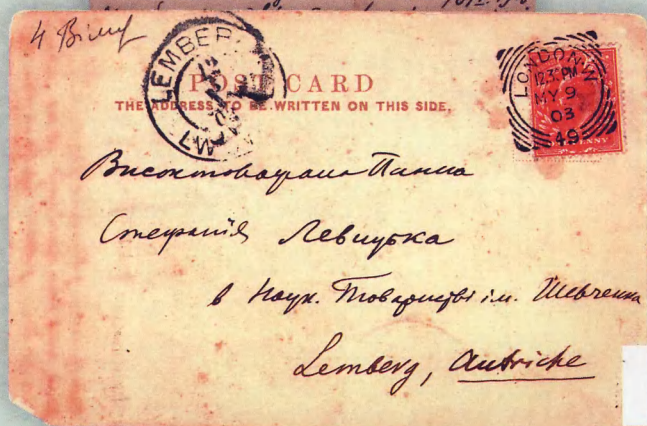 4
LEMBER
POST CARD
THE ADDRESS TO BE WRITTEN ON THIS SIDE.
LONDON.W
12.3 PM
MY 9
03
49
NNY
Високоповажана Панна
Стефанія Левицька
в Наук. Товаристві ім. Шевченка
Lemberg, Autriche